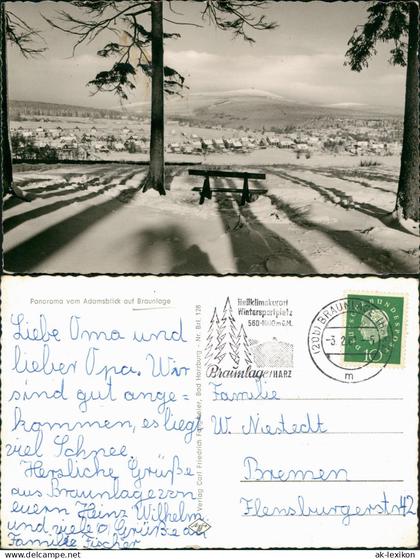 Panorama vom Adamsblick auf Braunlage
Liebe Oma und
lieber Opa. Wir
sind gut ange=
kommen, es liegt
viel Schnee.
Herzliche Grüße
aus Braunlage von
euern Heinz Wilhelm
und viele Grüße an
Familie Fischer
Verlag Carl Friedrich Fangmeier, Bad Harzburg - Nr. Brl. 128
Heilklimakurort
Wintersportplatz
560-1000m ü.M.
Braunlage/HARZ
(20b) BRAUNLAGE
-3.2.
m
DEUTSCHE BUNDESPOST
10
Familie
W. Niestedt
Bremen
Flensburgerstr. 42
© ak-lexikon.com